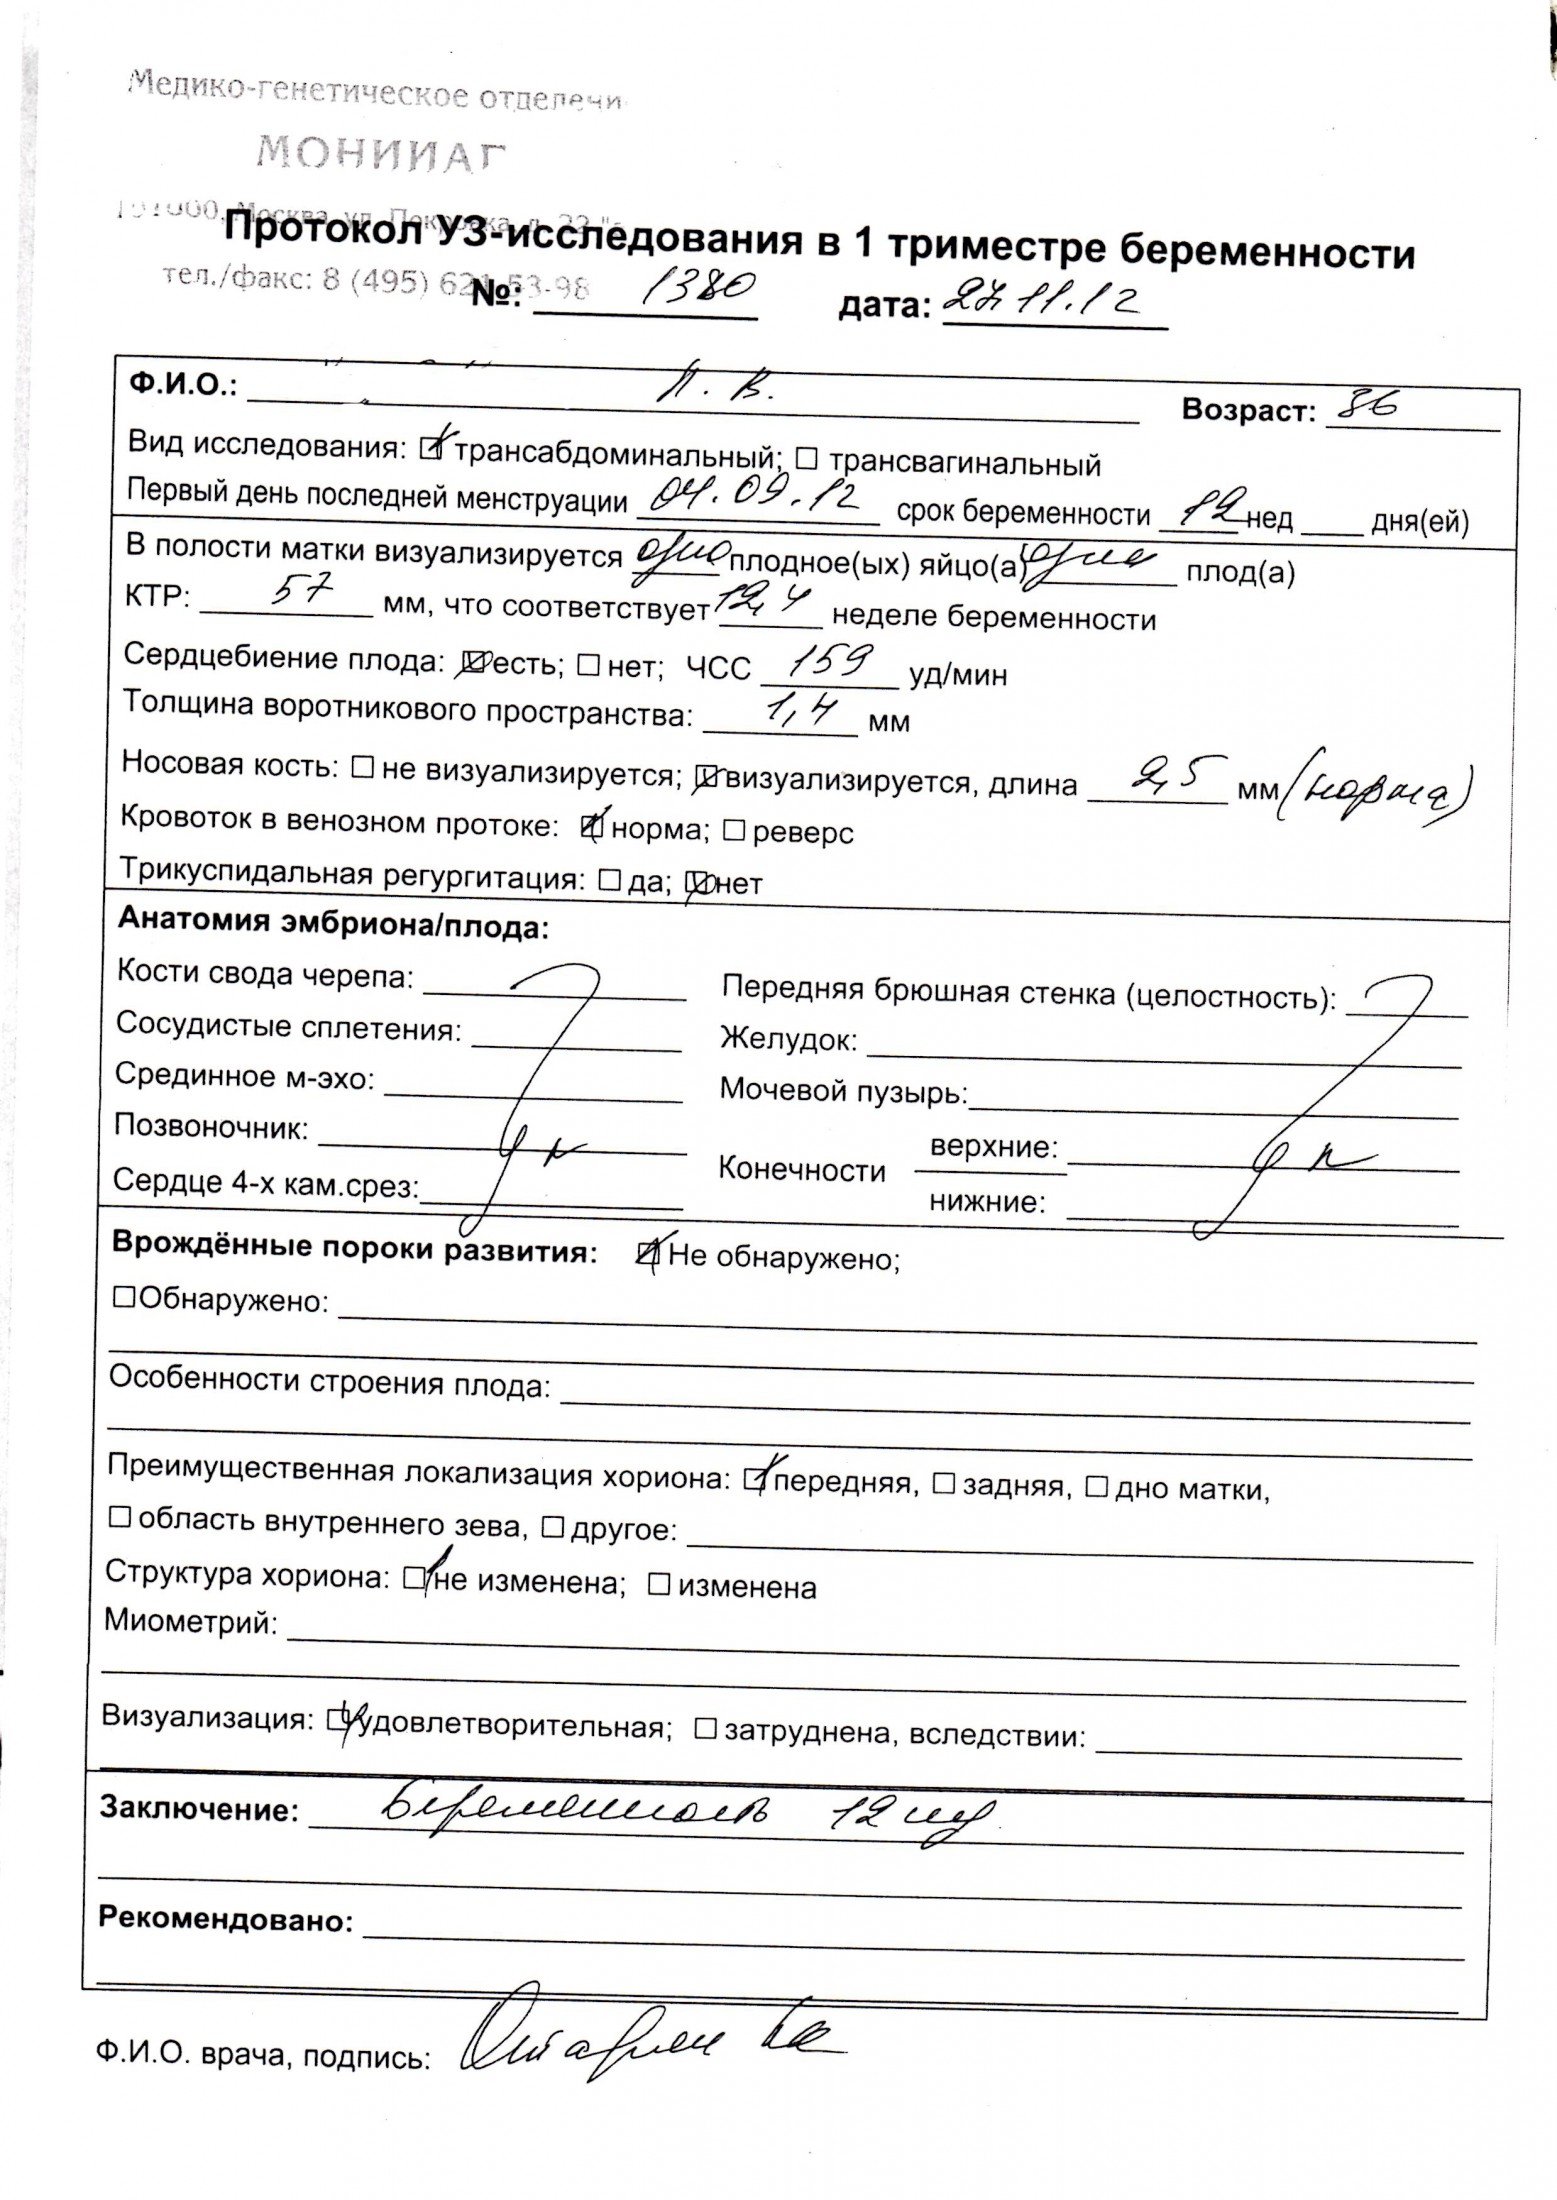 Медико-генетическое отделени
МОНИИАГ
101000, Москва, ул. Покровка, д. 22
Протокол УЗ-исследования в 1 триместре беременности
тел./факс: 8 (495) 621-53-98
№: 1380 дата: 27.11.12
Ф.И.О.: Л. В. Возраст: 36
Вид исследования: ☑ трансабдоминальный; ☐ трансвагинальный
Первый день последней менструации 04.09.12 срок беременности 12 нед ____ дня(ей)
В полости матки визуализируется одно плодное(ых) яйцо(а) один плод(а)
КТР: 57 мм, что соответствует 12,4 неделе беременности
Сердцебиение плода: ☑ есть; ☐ нет; ЧСС 159 уд/мин
Толщина воротникового пространства: 1,4 мм
Носовая кость: ☐ не визуализируется; ☑ визуализируется, длина 2,5 мм (норма)
Кровоток в венозном протоке: ☑ норма; ☐ реверс
Трикуспидальная регургитация: ☐ да; ☑ нет
Анатомия эмбриона/плода:
Кости свода черепа: Передняя брюшная стенка (целостность):
Сосудистые сплетения: Желудок:
Срединное м-эхо: Мочевой пузырь:
Позвоночник: Конечности верхние:
Сердце 4-х кам.срез: нижние:
Врождённые пороки развития: ☑ Не обнаружено;
☐ Обнаружено:
Особенности строения плода:
Преимущественная локализация хориона: ☑ передняя, ☐ задняя, ☐ дно матки,
☐ область внутреннего зева, ☐ другое:
Структура хориона: ☑ не изменена; ☐ изменена
Миометрий:
Визуализация: ☑ удовлетворительная; ☐ затруднена, вследствии:
Заключение: Беременность 12 нед
Рекомендовано:
Ф.И.О. врача, подпись: